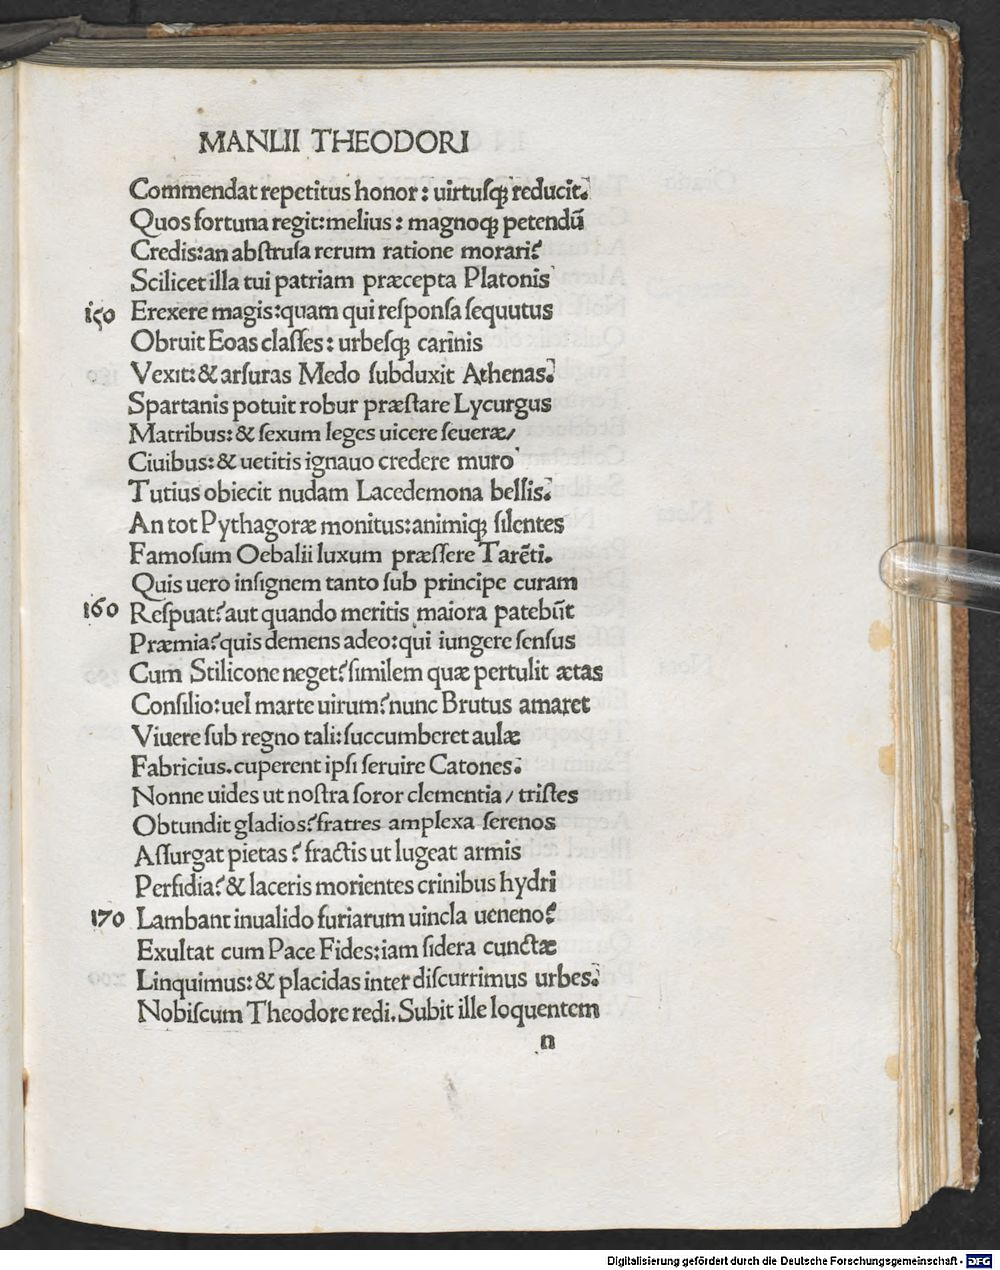 MANLII THEODORI
Commendat repetitus honor: uirtusꝗ reducit.
Quos fortuna regit: melius: magnoꝗ petendū
Credis: an abſtruſa rerum ratione morari?
Scilicet illa tui patriam præcepta Platonis
150 Erexere magis: quam qui reſponſa ſequutus
Obruit Eoas claſſes: urbeſꝗ carinis
Vexit: & arſuras Medo ſubduxit Athenas.
Spartanis potuit robur præſtare Lycurgus
Matribus: & ſexum leges uicere ſeueræ/
Ciuibus: & uetitis ignauo credere muro
Tutius obiecit nudam Lacedemona bellis.
An tot Pythagoræ monitus: animiꝗ ſilentes
Famoſum Oebalii luxum præſſere Tarēti.
Quis uero inſignem tanto ſub principe curam
160 Reſpuat? aut quando meritis maiora patebūt
Præmia? quis demens adeo: qui iungere ſenſus
Cum Stilicone neget? ſimilem quæ pertulit ætas
Conſilio: uel marte uirum? nunc Brutus amaret
Viuere ſub regno tali: ſuccumberet aulæ
Fabricius. cuperent ipſi ſeruire Catones.
Nonne uides ut noſtra ſoror clementia/ triſtes
Obtundit gladios? fratres amplexa ſerenos
Aſſurgat pietas? fractis ut lugeat armis
Perfidia? & laceris morientes crinibus hydri
170 Lambant inualido furiarum uincla ueneno?
Exultat cum Pace Fides; iam ſidera cunctæ
Linquimus: & placidas inter diſcurrimus urbes.
Nobiſcum Theodore redi. Subit ille loquentem
n
Digitalisierung gefördert durch die Deutsche Forschungsgemeinschaft - DFG